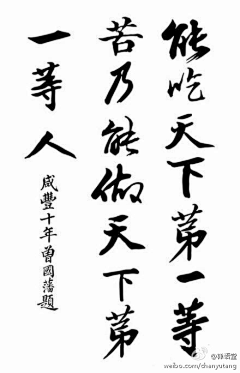 能吃天下苐一等
苦乃能做天下苐
一等人
咸豐十年曾國藩題
@禅语堂
weibo.com/chanyutang